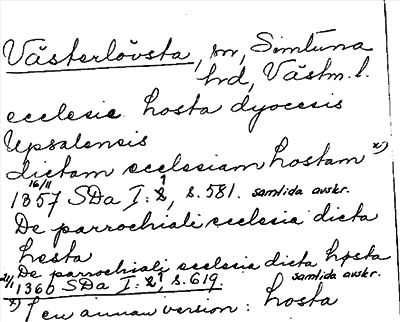 Västerlövsta, sn, Simtuna
hrd, Västm. l.
ecclesie hosta dyocesis
Upsalensis
dictam ecclesiam hostam x)
16/11 1357 SDa I: 1, s. 581. samtida avskr.
De parrochiali ecclesia dicta
hosta
De parrochiali ecclesia dicta hosta
1360 SDa I: 1, s. 619. samtida avskr.
x) I en annan version: hosta